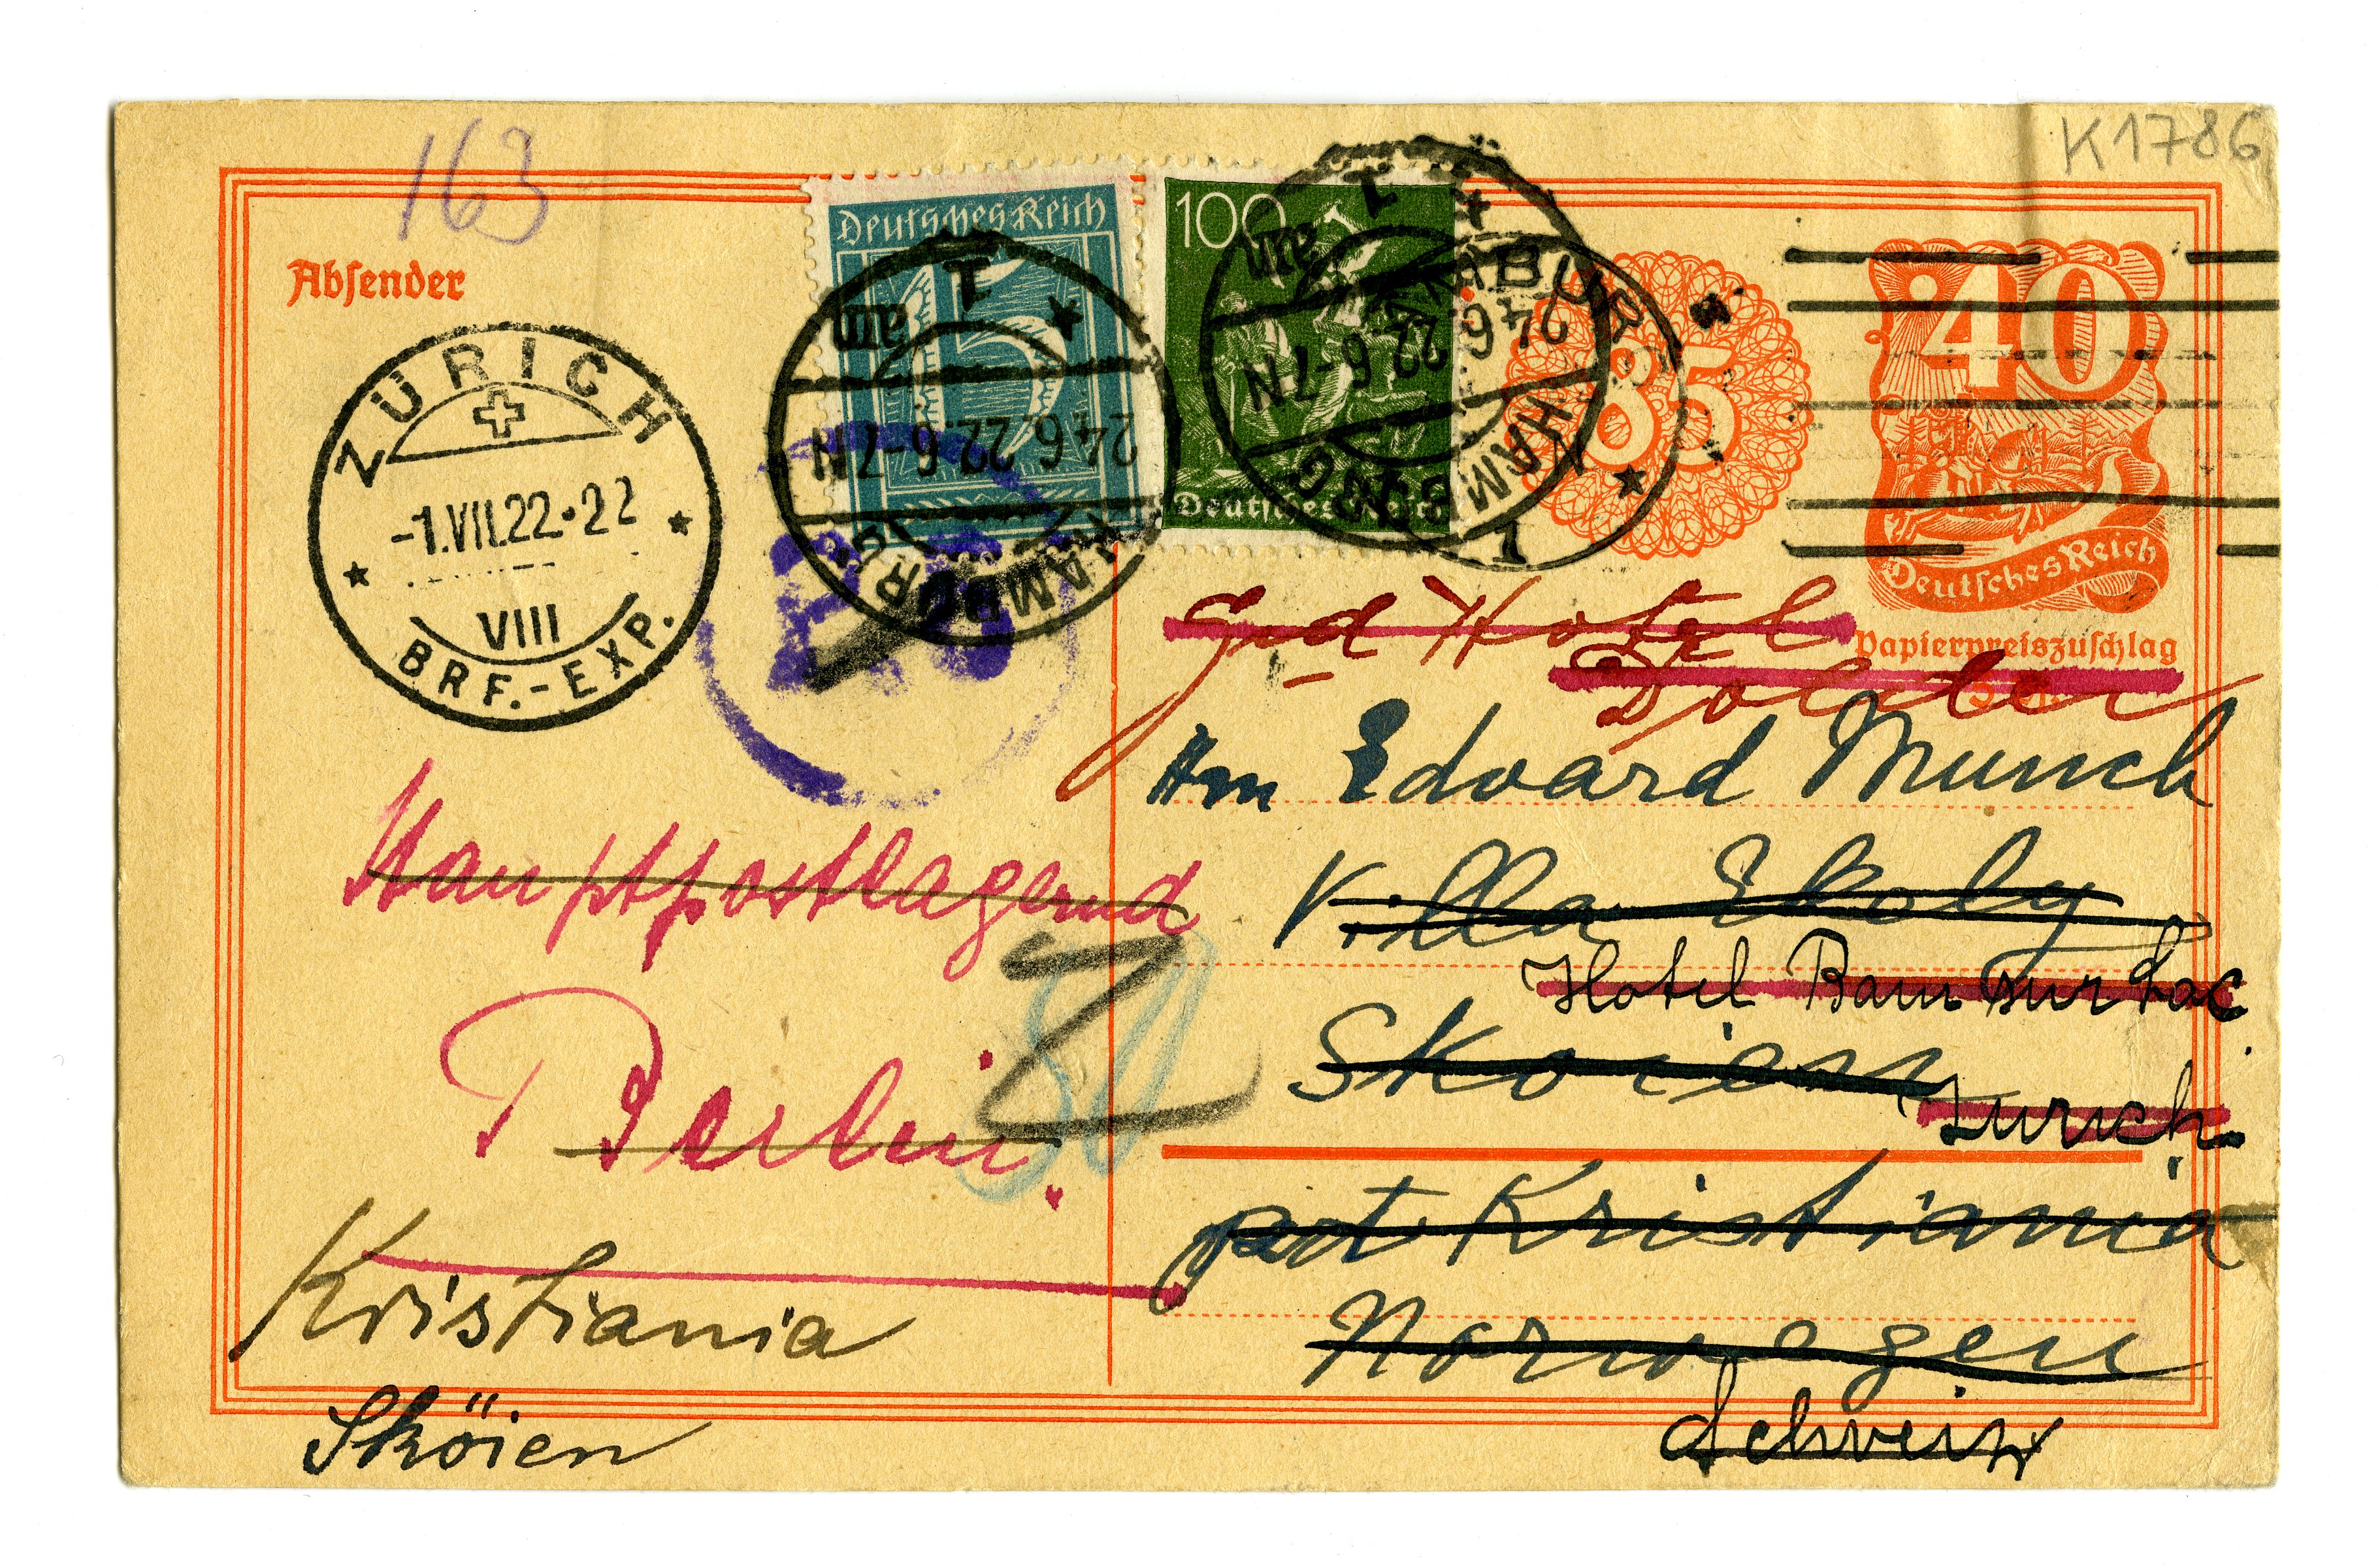 163
K1786
Absender
Deutsches Reich
5
100
Deutsches Reich
85
40
Deutsches Reich
Papierpreiszuschlag
HAMBURG
1
24.6.22.6-7N
HAMBURG
1
24.6.22.6-7N
HAMBURG
1
ZÜRICH
-1.VII.22-22
VIII
BRF.-EXP.
Gd Hotel
Dolder
Hrn Edvard Munch
Villa Ekely
Hotel Baur sur Lac
Skoien
Zurich
pst Kristiania
Norwegen
Schweiz
Hauptpostlagernd
Berlin.
80
Kristiania
Sköien